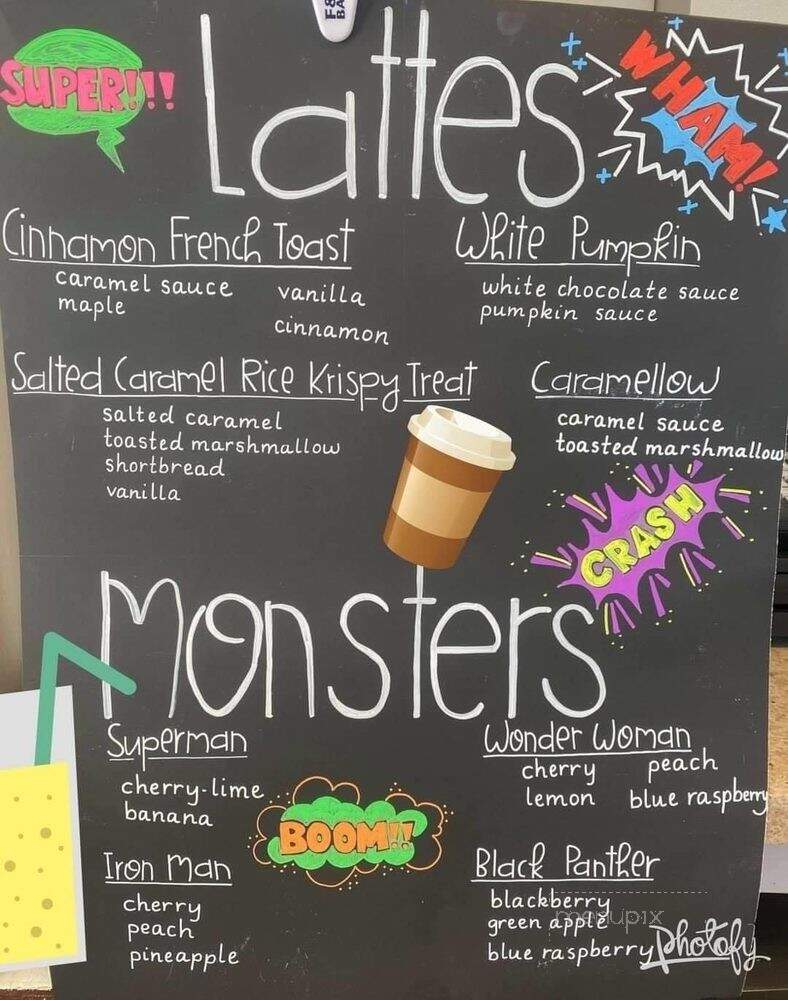 SUPER!!!
Lattes
WHAM!
Cinnamon French Toast
caramel sauce
maple
vanilla
cinnamon
White Pumpkin
white chocolate sauce
pumpkin sauce
Salted Caramel Rice Krispy Treat
salted caramel
toasted marshmallow
shortbread
vanilla
Caramellow
caramel sauce
toasted marshmallow
CRASH
Monsters
Superman
cherry-lime
banana
Wonder Woman
cherry
lemon
peach
blue raspberry
BOOM!!
Iron Man
cherry
peach
pineapple
Black Panther
blackberry
green apple
blue raspberry
menupix
photofy